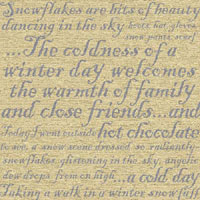 Snowflakes are bits of beauty
dancing in the sky boots, hat, gloves
snow pants, scarf
...The coldness of a
winter day welcomes
the warmth of family
and close friends...and
today I went outside hot chocolate
to see a snow scene dressed so radiently
snowflakes glistening in the sky, angelic
dew drops from on high... a cold day
Taking a walk in a winter snow fall